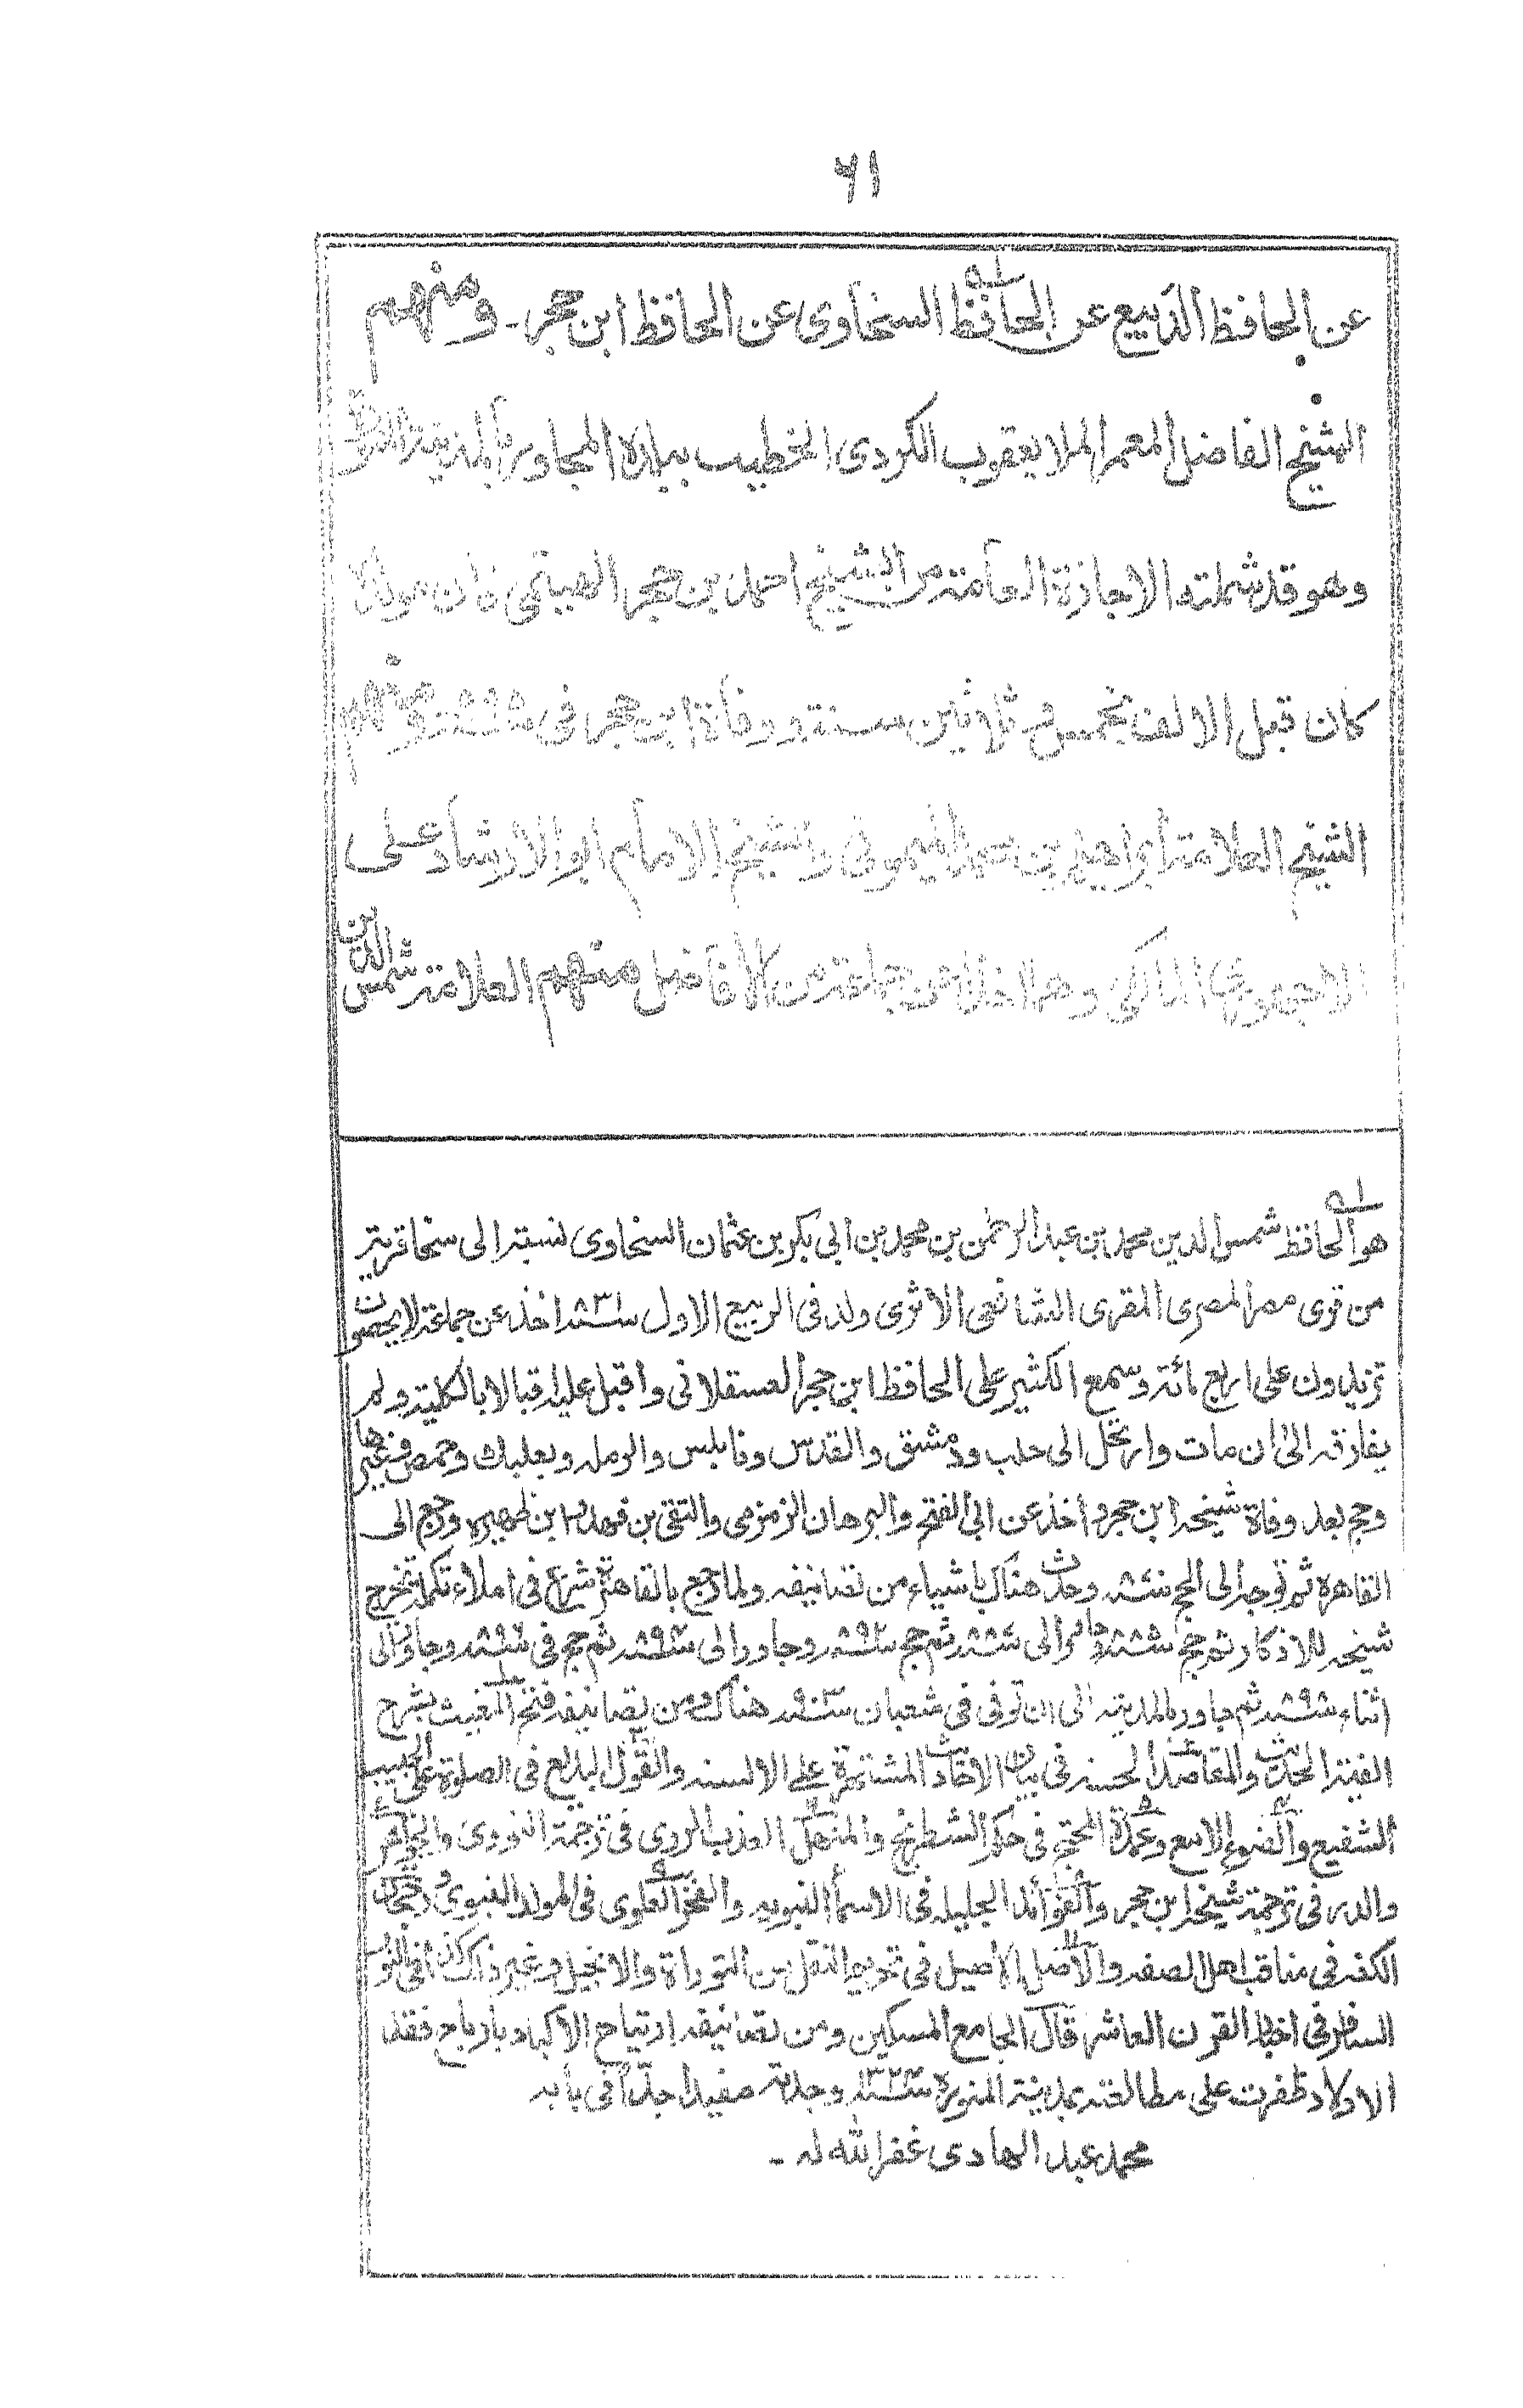 ٦١
عن الحافظ الديبع عن الحافظ السخاوى عن الحافظ ابن حجر۔ ومنهم
الشيخ الفاضل المعمر الملا يعقوب الكردى الخطيب ببلاده المجاور بالمدينة
وهو قد شملته الاجازة العامة من الشيخ احمد بن حجر الهيتمى فان مولده
كان قبل الالف بخمس و ثلاثين سنة ووفاة ابن حجر فى ومنهم
الشيخ العلامة ابراهيم بن محمد الميمونى والشيخ الامام ابو الارشاد على
الاجهورى المالكى وهما اخذا عن جماعة من الافاضل منهم العلامة شمس الدين
هو الحافظ شمس الدين محمد ابن عبد الرحمن بن محمد بن ابى بكر بن عثمان السخاوى نسبته الى سخا قرية
من قرى مصر المصرى المقرى الشافعى الاثرى ولد فى الربيع الاول سنة ٨٣١ اخذ عن جماعة لا يحصون
تزيدون على اربع مائة وسمع الكثير على الحافظ ابن حجر العسقلانى واقبل عليه اقبالا بالكلية ولم
يفارقه الى ان مات وارتحل الى حلب ودمشق والقدس ونابلس والرمله وبعلبك وحمص وغيرها
وحج بعد وفاة شيخه ابن حجر واخذ عن ابى الفتح والبرهان الزمزمى والتقى بن فهد وابن ظهيره ورجع الى
القاهرة ثم توجه الى الحج وحدث هناك باشياء من تصانيفه ولما رجع بالقاهرة شرع فى املاء تكملة تخريج
شيخه للاذكار ثم حج وجاور الى ثم حج وجاور الى ثم حج فى وجاور الى
اثناء ثم جاور بالمدينه الى ان توفى فى شعبان سنة ٩٠٢ هناك ومن تصانيفه فتح المغيث بشرح
الفية الحديث والمقاصد الحسنه فى بيان الاحاديث المشتهرة على الالسنه والقول البديع فى الصلوة على الحبيب
الشفيع والضوء اللامع وعمدة المحتج فى حكم الشطرنج والمنهل العذب الروى فى ترجمة النووى والجواهر
والدرر فى ترجمة شيخه ابن حجر والفوائد الجليله فى الاسماء النبويه والفخر العلوى فى المولد النبوى ورجحان
الكفه فى مناقب اهل الصفه والاصل الاصيل فى تحريم النقل من التوراة والانجيل وغير ذلك كذا فى النور
السافر فى اخبار القرن العاشر قال الجامع المسكين ومن تصانيفه ارتياح الاكباد بارباح فقد
الاولاد ظفرت على مطالعته بمدينة المنورة وجدته مفيدا جدا فى بابه
محمد عبد الهادى غفر الله له ۔